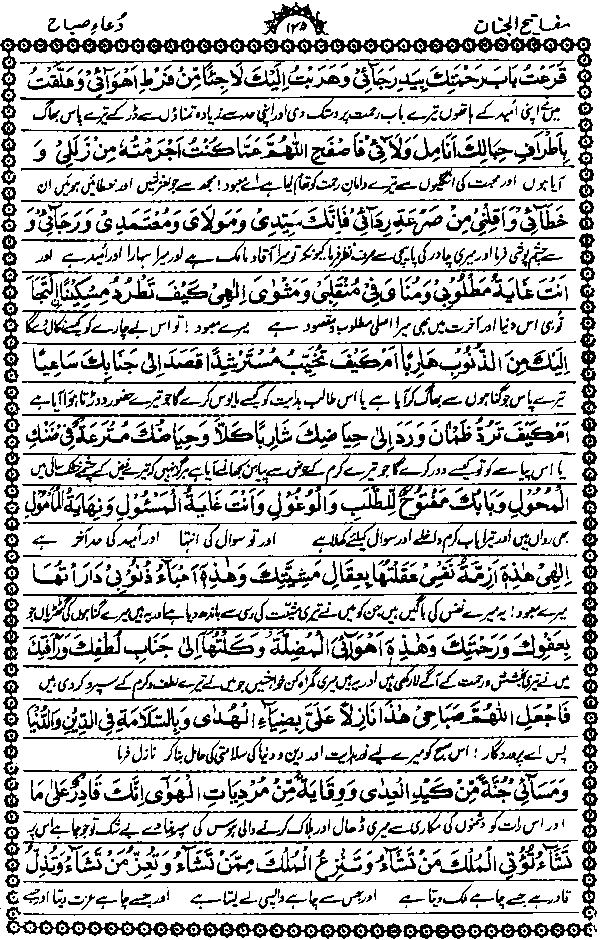 مفاتیح الجنان ۱۲۵ دُعاءِ صباح
قَرَعْتُ بَابَ رَحْمَتِكَ بِيَدِ رَجَائِي وَهَرَبْتُ إِلَيْكَ لَاجِئًا مِنْ فَرْطِ أَهْوَائِي وَعَلَّقْتُ
میں اپنی اُمید کے ہاتھوں تیرے باب رحمت پر دستک دی اور اپنی حد سے زیادہ تمناؤں سے ڈر کے تیرے پاس بھاگ
بِأَطْرَافِ حِبَالِكَ أَنَامِلَ وَلَائِي فَاصْفَحِ اللّٰهُمَّ عَمَّا كُنْتُ أَجْرَمْتُهُ مِنْ زَلَلِي وَ
آیا ہوں اور محبت کی انگلیوں سے تیرے دامانِ رحمت کو تھام لیا ہے اے معبود! مجھ سے جو لغزشیں اور خطائیں ہوئیں ان
خَطَائِي وَأَقِلْنِي مِنْ صَرْعَةِ رِدَائِي فَإِنَّكَ سَيِّدِي وَمَوْلَايَ وَمُعْتَمَدِي وَرَجَائِي وَ
سے چشم پوشی فرما اور میری چادر کی سے صرف نظر فرما کیونکہ تو میرا آقا و مالک ہے اور میرا سہارا اور اُمید ہے اور
أَنْتَ غَايَةُ مَطْلُوبِي وَمُنَايَ وَفِي مُنْقَلَبِي وَمَثْوَايَ إِلٰهِي كَيْفَ تَطْرُدُ مِسْكِينًا الْتَجَأَ
تو ہی اس دنیا اور آخرت میں بھی میرا اصلی مطلوب و مقصود ہے میرے معبود! تو اس بے چارے کو کیسے نکال دے گا
إِلَيْكَ مِنَ الذُّنُوبِ هَارِبًا أَمْ كَيْفَ تُخَيِّبُ مُسْتَرْشِدًا قَصَدَ إِلَى جَنَابِكَ سَاعِيًا
تیرے پاس جو گناہوں سے بھاگ کر آیا ہے یا اس طالب ہدایت کو کیسے مایوس کرے گا جو تیرے حضور دوڑتا ہوا آیا ہے
أَمْ كَيْفَ تَرُدُّ ظَمْآنَ وَرَدَ إِلَى حِيَاضِكَ شَارِبًا كَلَّا وَحِيَاضُكَ مُتْرَعَةٌ فِي ضَنْكِ
یا اس پیاسے کو تو کیسے دور کرے گا جو تیرے کرم کے حوض سے پیاس بجھانے آیا ہے ہرگز نہیں کہ تیرے فیض کے چشمے خشک سالی میں
الْمُحُولِ وَبَابُكَ مَفْتُوحٌ لِلطَّلَبِ وَالْوُغُولِ وَأَنْتَ غَايَةُ الْمَسْئُولِ وَنِهَايَةُ الْمَأْمُولِ
بھی رواں ہیں اور تیرا باب کرم داخلے اور سوال کیلئے کھلا ہے اور تو سوال کی انتہا اور اُمید کی حد آخر ہے
إِلٰهِي هٰذِهِ أَزِمَّةُ نَفْسِي عَقَلْتُهَا بِعِقَالِ مَشِيَّتِكَ وَهٰذِهِ أَعْبَاءُ ذُنُوبِي دَرَأْتُهَا
میرے معبود! یہ میرے نفس کی باگیں ہیں جن کو میں نے تیری مشیت کی رسی سے باندھ دیا ہے اور یہ ہیں میرے گناہوں کی گٹھڑیاں جو
بِعَفْوِكَ وَرَحْمَتِكَ وَهٰذِهِ أَهْوَائِي الْمُضِلَّةُ وَكَلْتُهَا إِلَى جَنَابِ لُطْفِكَ وَرَأْفَتِكَ
میں نے تیری بخشش و رحمت کے آگے لا رکھی ہیں اور یہ ہیں میری گمراہ کن خواہشیں جو میں نے تیرے لطف و کرم کے سپرد کر دی ہیں
فَاجْعَلِ اللّٰهُمَّ صَبَاحِي هٰذَا نَازِلًا عَلَيَّ بِضِيَاءِ الْهُدَى وَبِالسَّلَامَةِ فِي الدِّينِ وَالدُّنْيَا
پس اے پروردگار! اس صبح کو میرے لیے نور ہدایت اور دین و دنیا کی سلامتی کی حامل بنا کر نازل فرما
وَمَسَائِي جُنَّةً مِنْ كَيْدِ الْعِدَى وَوِقَايَةً مِنْ مُرْدِيَاتِ الْهَوَى إِنَّكَ قَادِرٌ عَلَى مَا
اور اس رات کو دشمنوں کی مکاری سے میری ڈھال اور ہلاک کرنے والی ہوس کی سپر بنا دے بے شک تو جو چاہے اس پر
تَشَاءُ تُؤْتِي الْمُلْكَ مَنْ تَشَاءُ وَتَنْزِعُ الْمُلْكَ مِمَّنْ تَشَاءُ وَتُعِزُّ مَنْ تَشَاءُ وَتُذِلُّ
قادر ہے جسے چاہے ملک دیتا ہے اور جس سے چاہے واپس لے لیتا ہے اور جسے چاہے عزت دیتا اور جسے